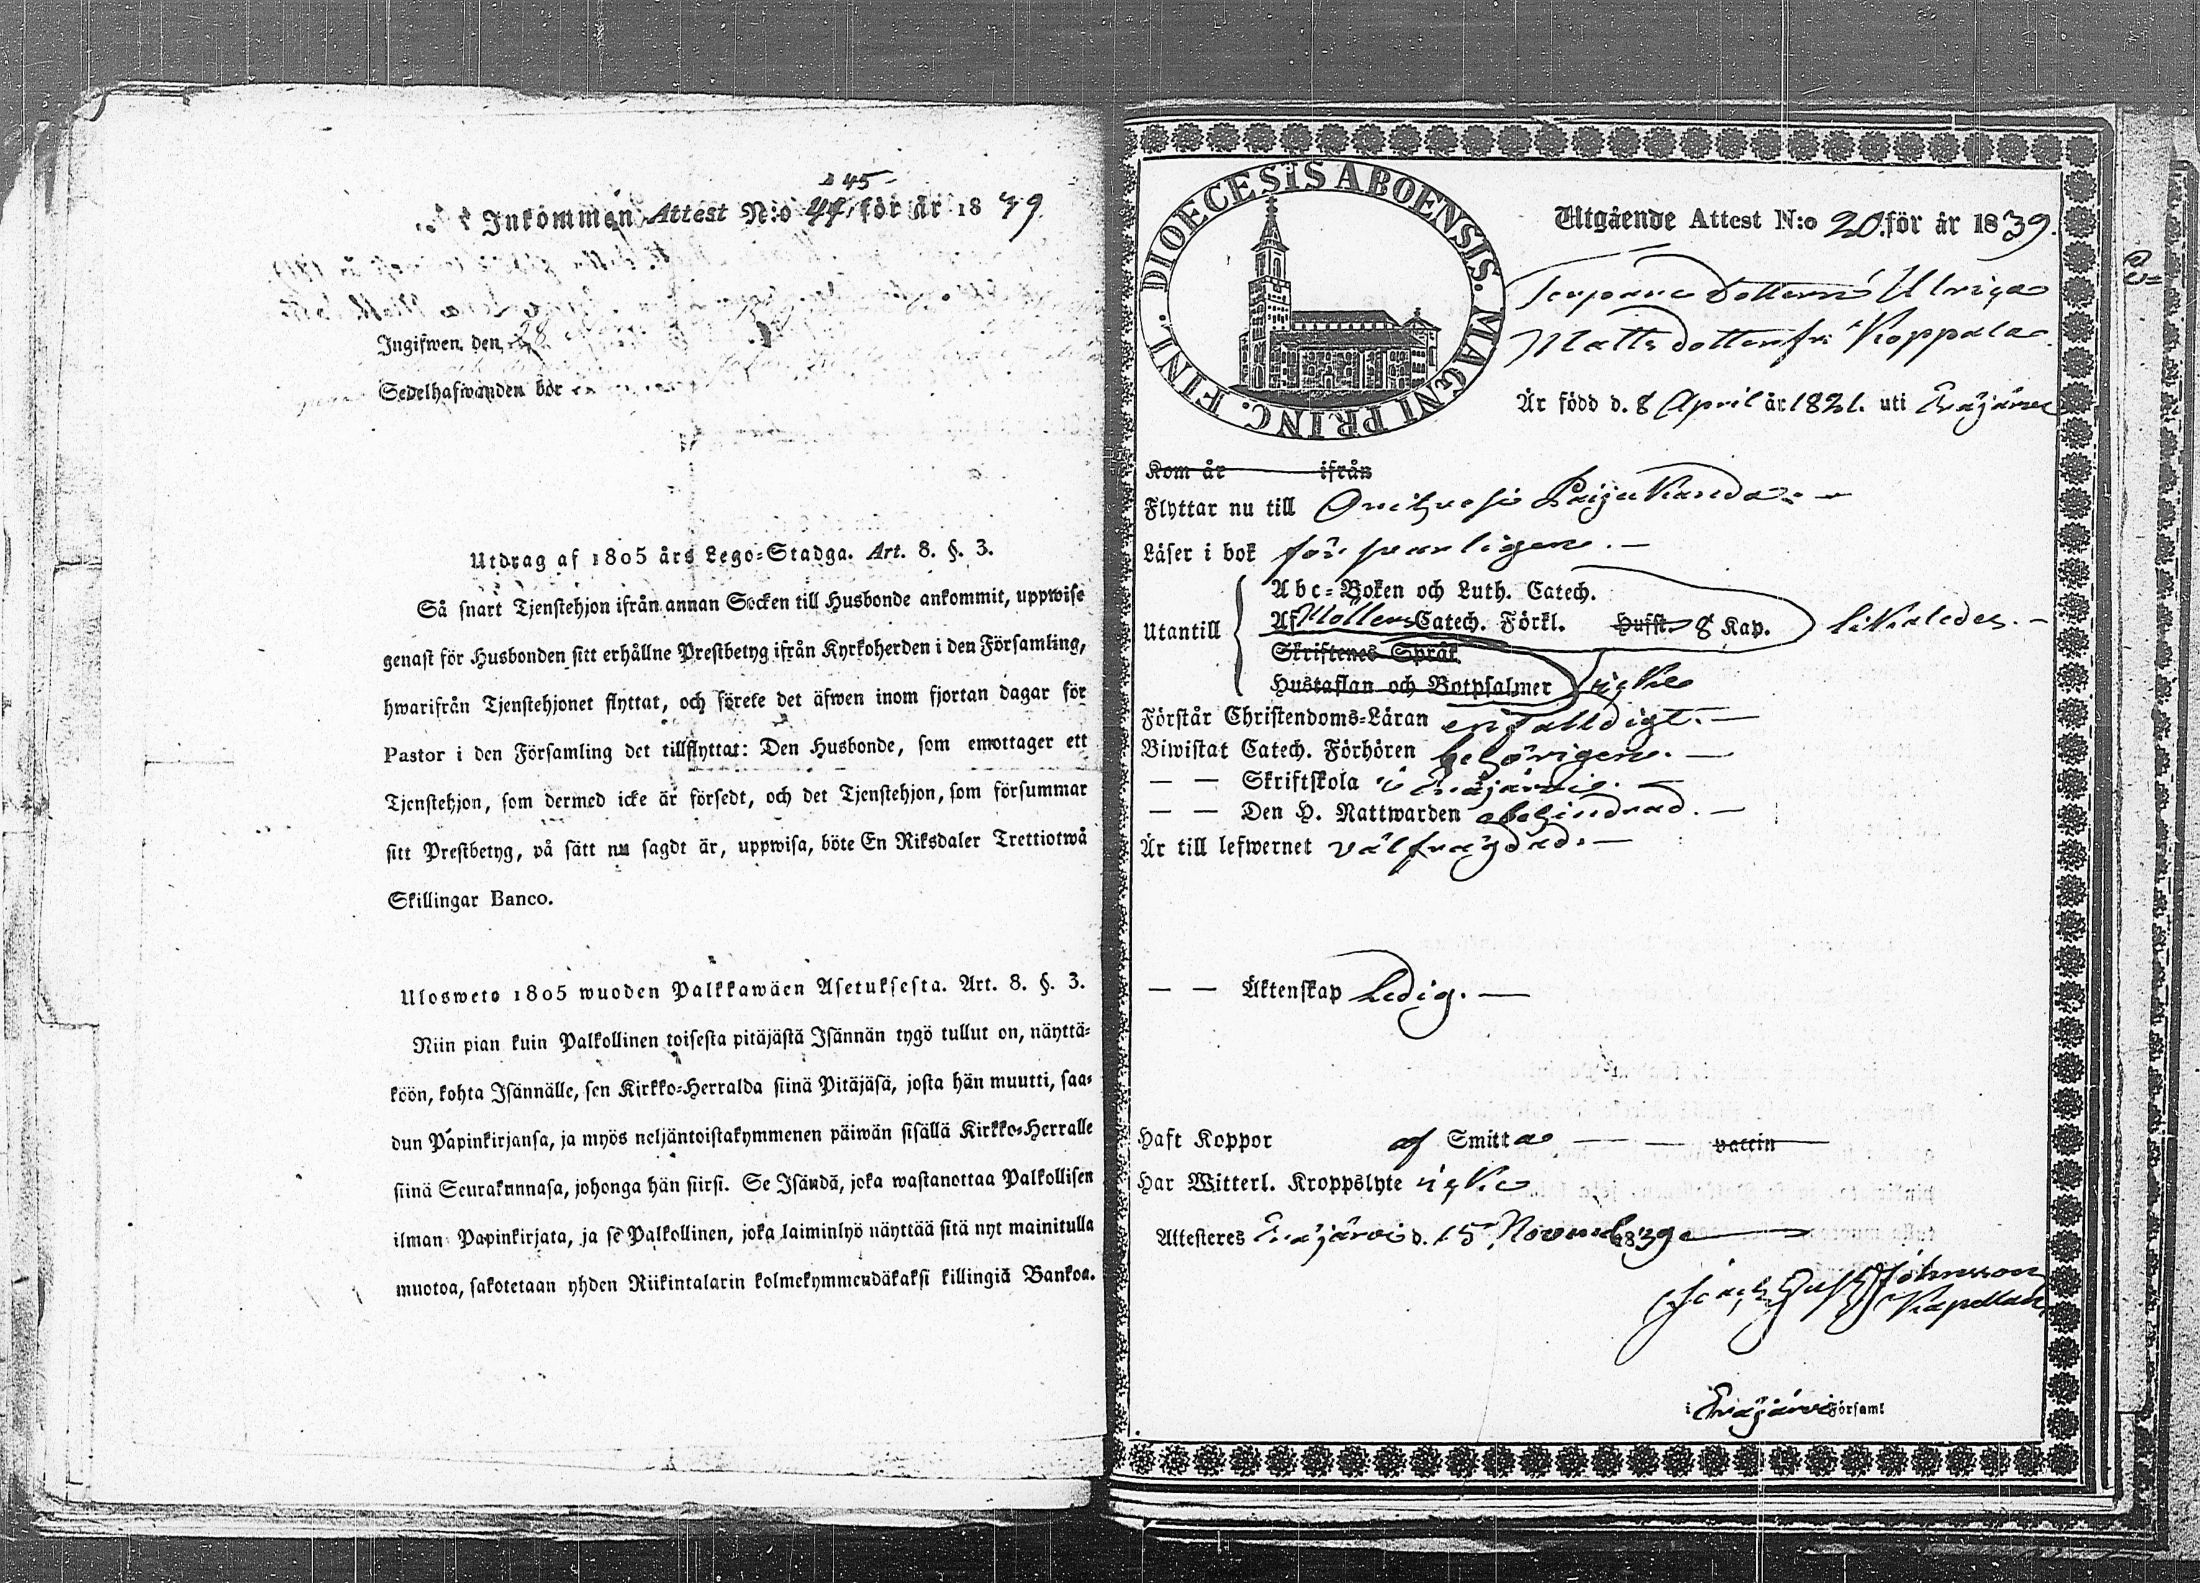 245
Inkommen Attest N:o 44 för år 1839
Ingifwen den 28
Sedelhafwanden bör
Utdrag af 1805 års Lego-Stadga. Art. 8. §. 3.
Så snart Tjenstehjon ifrån annan Socken till Husbonde ankommit, uppwise
genast för Husbonden sitt erhållne Prestbetyg ifrån Kyrkoherden i den Församling,
hwarifrån Tjenstehjonet flyttat, och förete det äfwen inom fjortan dagar för
Pastor i den Församling det tillflyttat: Den Husbonde, som emottager ett
Tjenstehjon, som dermed icke är försedt, och det Tjenstehjon, som försummar
sitt Prestbetyg, på sätt nu sagdt är, uppwisa, böte En Riksdaler Trettiotwå
Skillingar Banco.
Ulosweto 1805 wuoden Palkkawäen Asetuksesta. Art. 8. §. 3.
Niin pian kuin Palkollinen toisesta pitäjästä Isännän tygö tullut on, näyttä-
köön, kohta Isännälle, sen Kirkko-Herralda siinä Pitäjäsä, josta hän muutti, saa-
dun Papinkirjansa, ja myös neljäntoistakymmenen päiwän sisällä Kirkko-Herralle
siinä Seurakunnasa, johonga hän siirsi. Se Isändä, joka wastanottaa Palkollisen
ilman Papinkirjata, ja se Palkollinen, joka laiminlyö näyttää sitä nyt mainitulla
muotoa, sakotetaan yhden Riikintalarin kolmekymmendäkaksi killingiä Bankoa.
DIOECESIS ABOENSIS. MAGNI PRINC. FINL.
Utgående Attest N:o 20 för år 1839.
Torpare Dottern Ulrica
Matts dotter fr. Koppala
Är född d. 8 April år 1821. uti Eräjärvi
Kom år ifrån
Flyttar nu till Orihvesi Paijukanda.
Läser i bok försvarligen.
Utantill
Abc-Boken och Luth. Catech.
Af Möllers Catech. Förkl. Hufst. 8 Kap. likaledes.
Skriftenes Språk
Hustaflan och Botpsalmer icke
Förstår Christendoms-Läran enfalldigt.
Biwistat Catech. Förhören behörigen.
— — Skriftskola i Eräjärvi.
— — Den H. Nattwarden obehindrad.
Är till lefwernet välfrägdad.
— — Äktenskap Ledig.
Haft Koppor af Smitta — — vaccin
Har Witterl. Kroppslyte icke
Attesteres Eräjärvi d. 15 November 1839
Gust. Johnsson
Kapellan
i Eräjärvi Församl